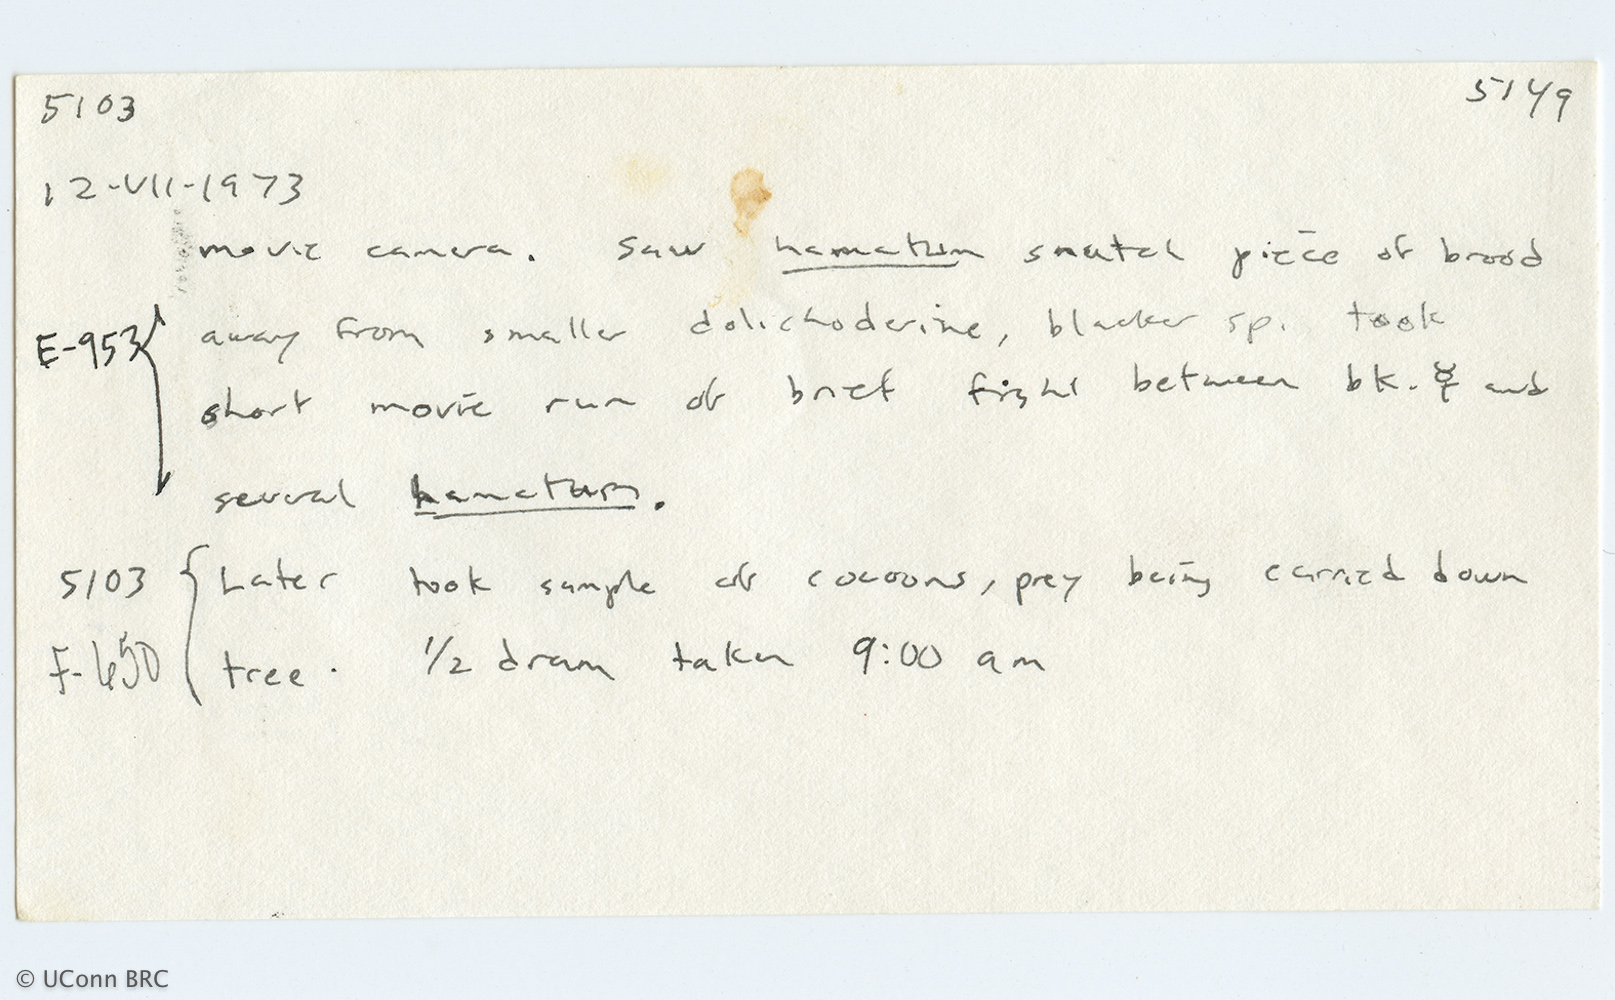 5103 5149
12-VII-1973
movie camera. Saw hamatum snatch piece of brood
E-953 away from smaller dolichoderine, blacker sp. took
short movie run of brief fight between bk. ☿ and
several hamatum.
5103 Later took sample of cocoons, prey being carried down
F-650 tree. 1/2 dram taken 9:00 am
© UConn BRC